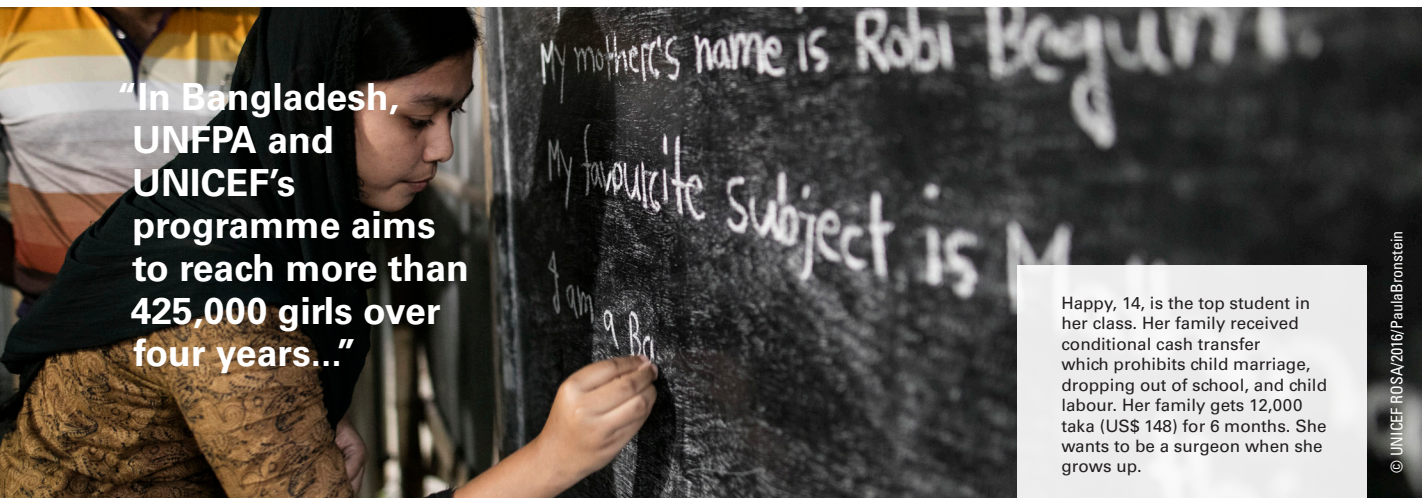 “In Bangladesh,
UNFPA and
UNICEF’s
programme aims
to reach more than
425,000 girls over
four years...”
My mother's name is Robi Begum.
My favourite subject is
I am a Ba
Happy, 14, is the top student in
her class. Her family received
conditional cash transfer
which prohibits child marriage,
dropping out of school, and child
labour. Her family gets 12,000
taka (US$ 148) for 6 months. She
wants to be a surgeon when she
grows up.
© UNICEF ROSA/2016/PaulaBronstein